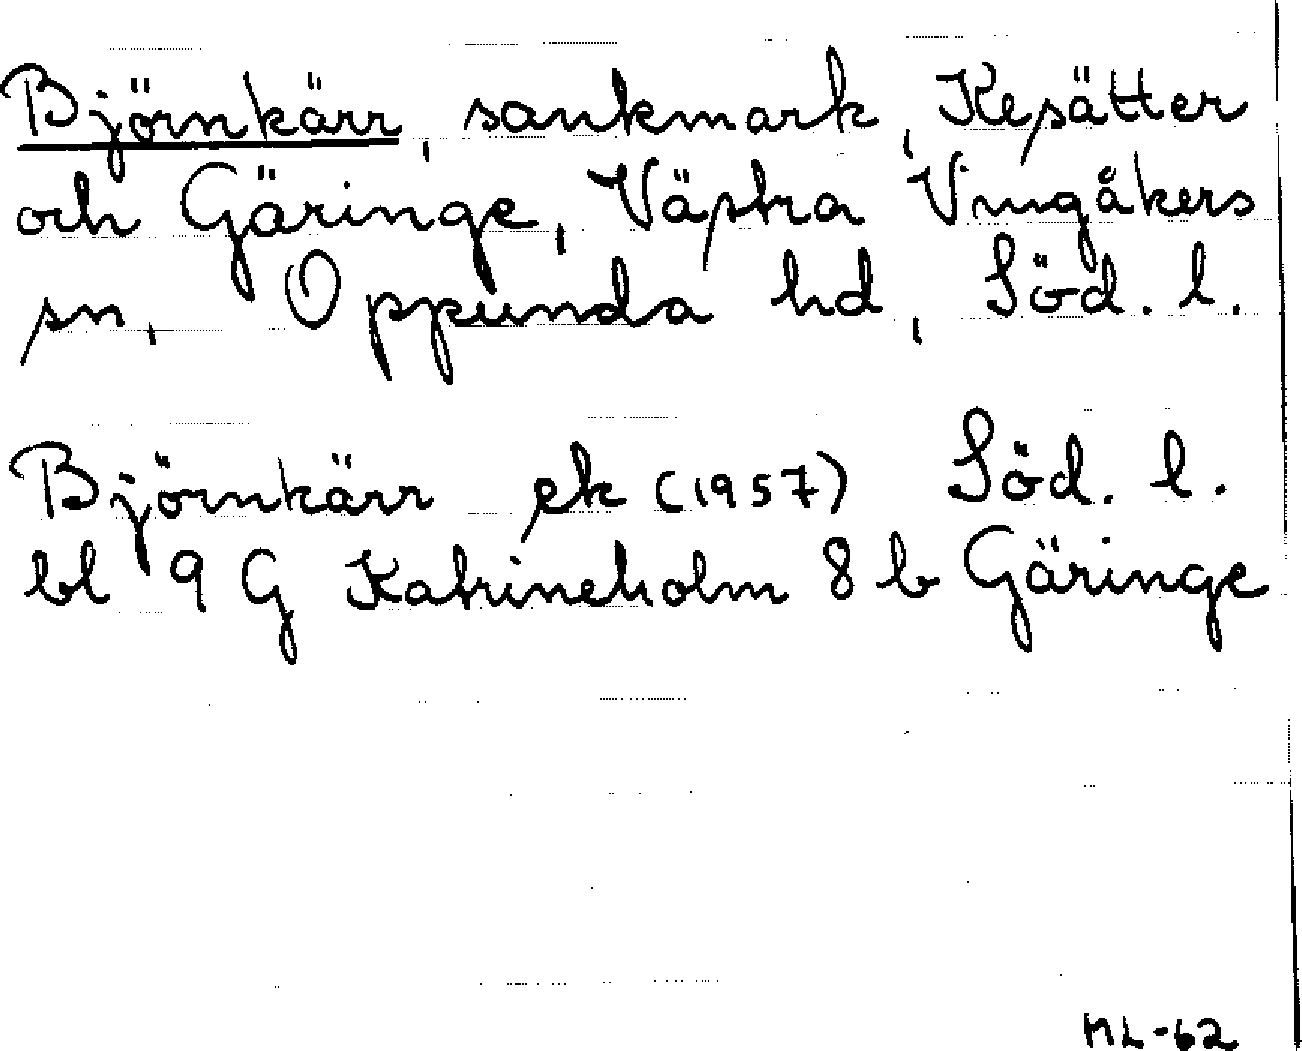 Björnkärr, sankmark, Kesätter
och Gäringe, Västra Vingåkers
sn, Oppunda hd, Söd. l.
Björnkärr ek (1957) Söd. l.
bl 9 G Katrineholm 8 b Gäringe
ML-62